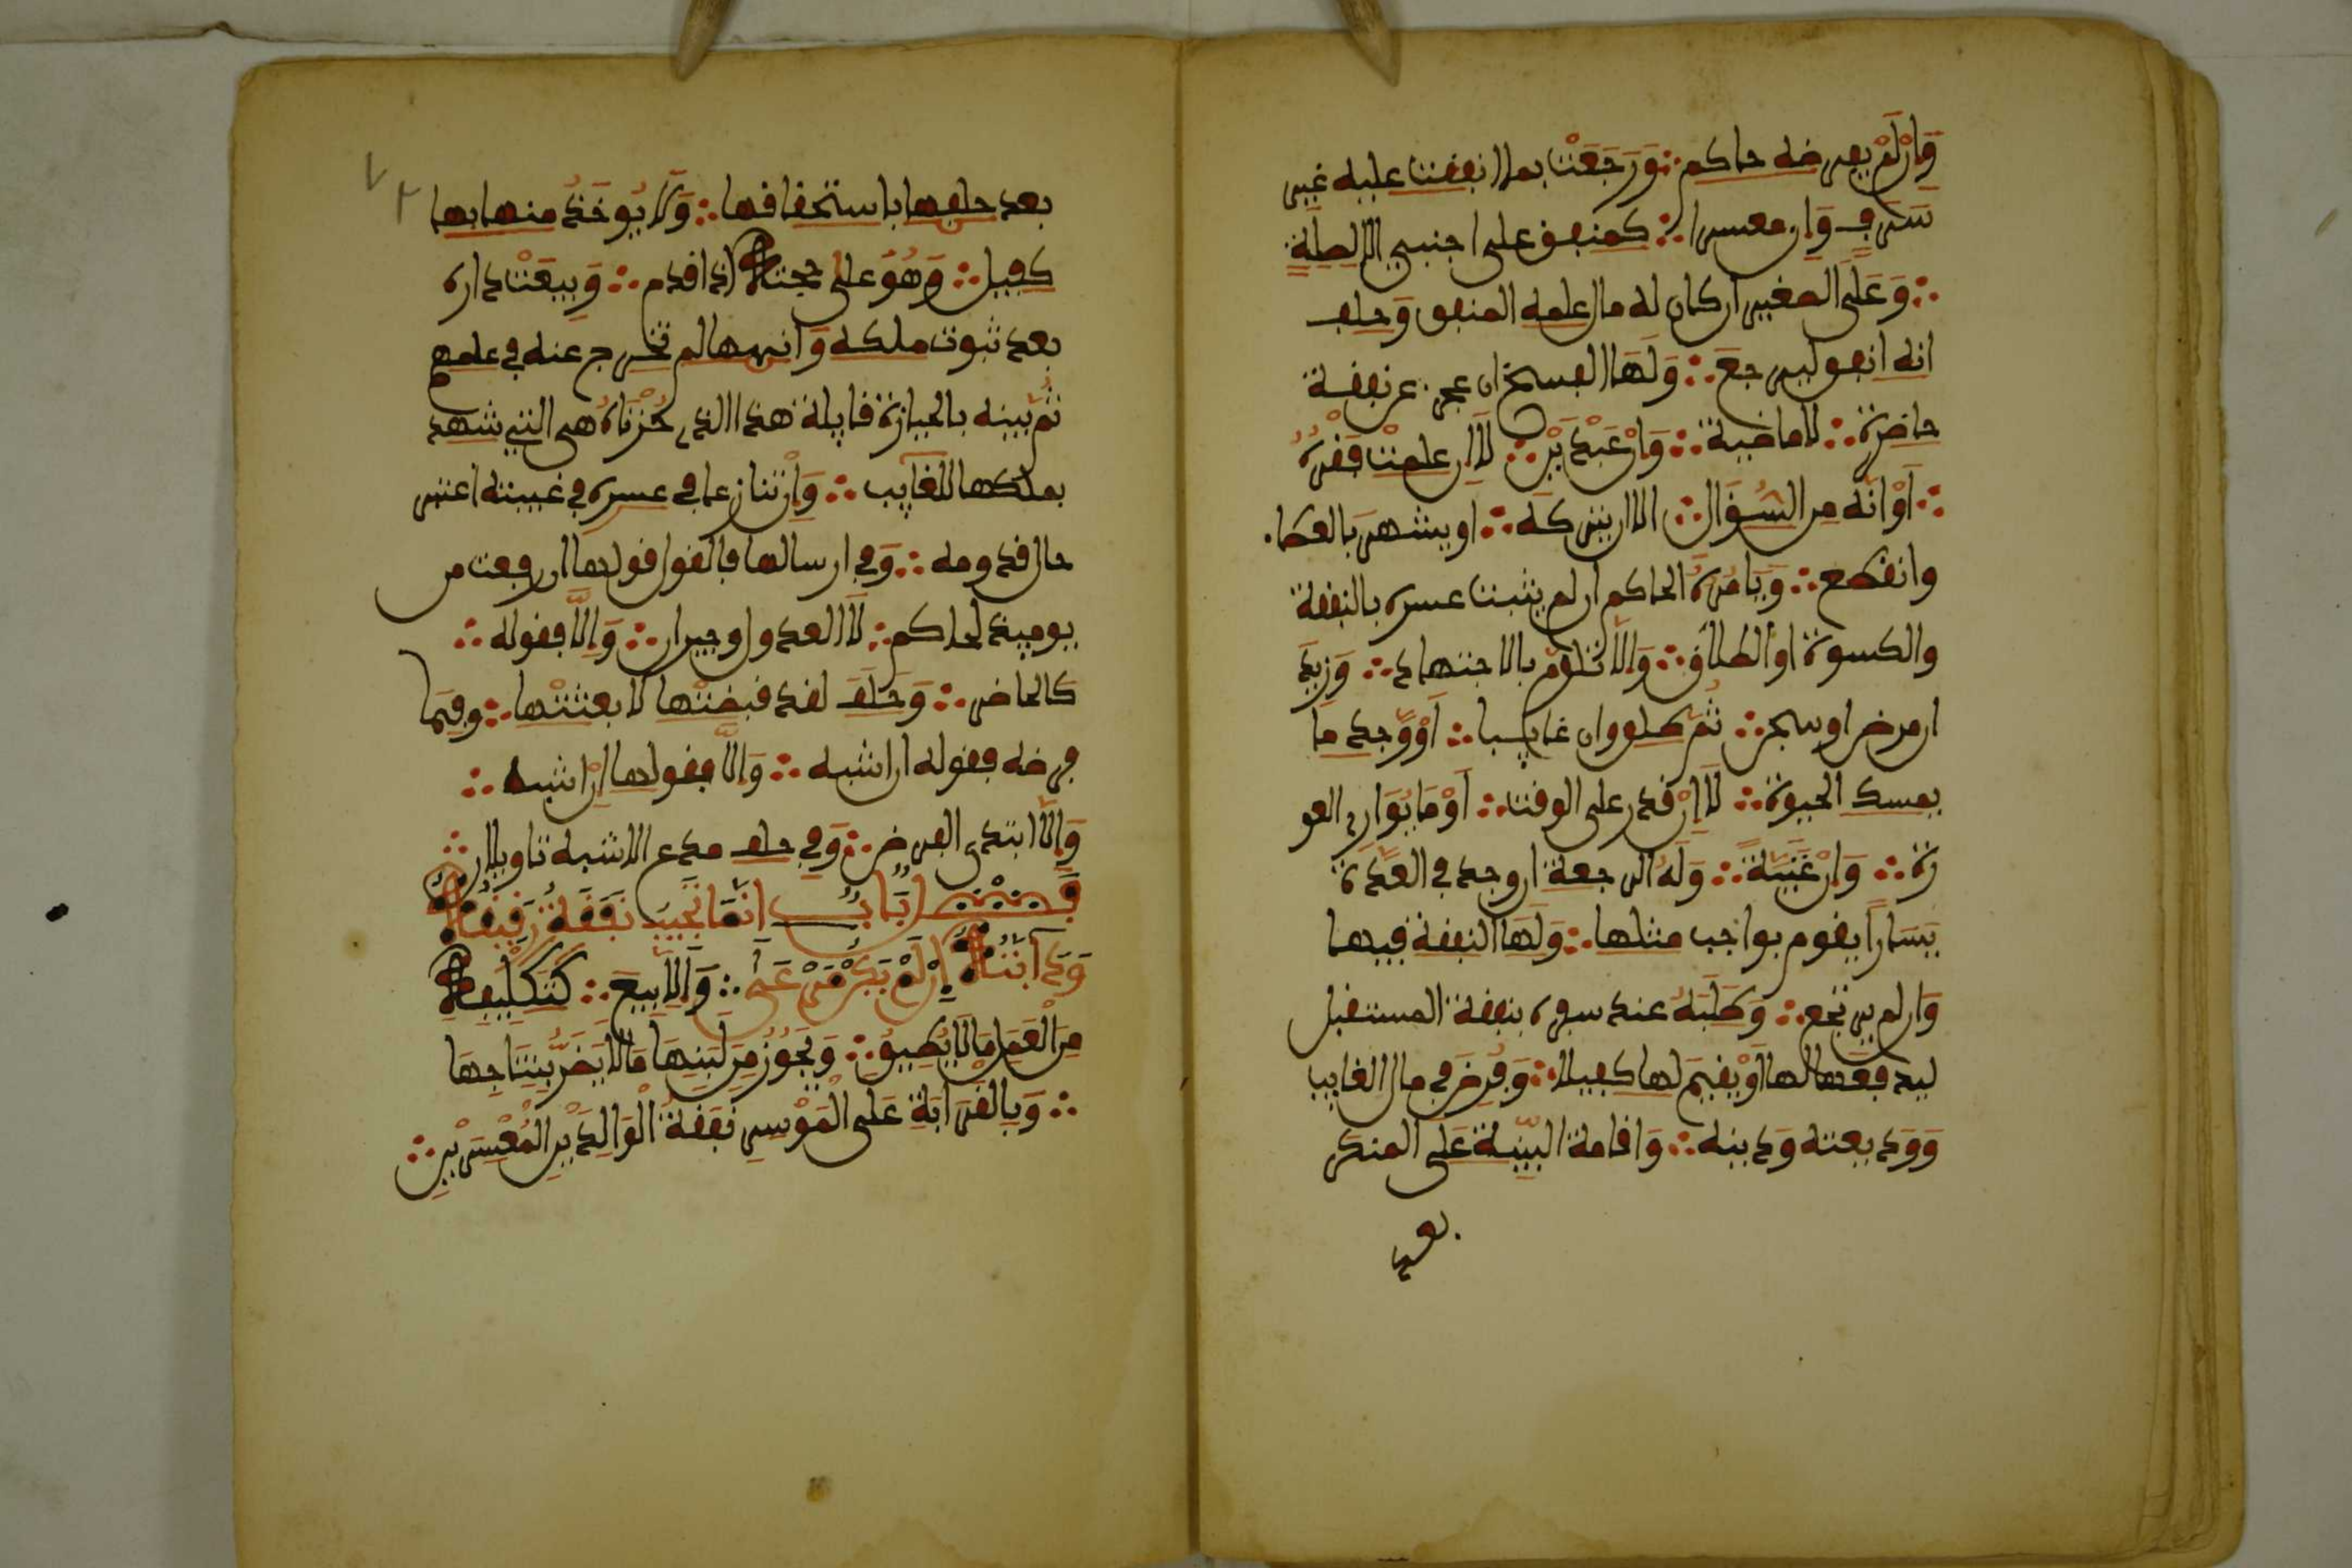 وَإن لَمْ يفرضه حاكم ∴ وَرَجَعَتْ بما انفقت عليه غير
سَرَفٍ وَإن معسرا ∴ كمنفق على اجنبي الا لصلة
∴ وَعَلَى الصغير ان كان له مال علمه المنفق وَحلف
انه انفق ليرجع ∴ وَلَهَا الفسخ ان عجز عن نفقة
حاضرة ∴ لا ماضية ∴ وَإن عَبْدَيْنِ ∴ لَا ان علمت فَقْرَهُ
∴ أَوْ انَّه من السُؤَّال ∴ الا ان يتركه ∴ او يشتهر بالعطاء
وانقطع ∴ وَيَامُرُهُ الحاكم ان لم يثبت عسره بالنفقة
والكسوة او الطلاق ∴ وَإلا تُلُوِّم بالاجتهاد ∴ وَزِيدَ
ان مرض او سجن ∴ ثُمَّ طلق وان غايبا ∴ أَوْ وَجد ما
يمسك الحيوة ∴ لَا إنْ قدر على الوقت ∴ أَوْ مَا يُوَارِي العو
رة ∴ وَإنْ غَنِيَّة ∴ وَلَهُ الرجعة ان وجد في العِدَّة
يَسَاراً يقوم بواجب مثلها ∴ وَلَهَا النفقة فيها
وَان لم يرتجع ∴ وَطَلَبُهُ عند سفره بنفقة المستقبل
ليدفعها لها أَوْ يُقِيمَ لها كفيلا ∴ وَفُرِضَ في مال الغايب
وَوَديعته وَدينه ∴ وَاقامة البيّنة عَلى المنكر
بعد
بعد حلفها باستحقاقها ∴ وَلَا يُوخَذُ منها بها
كفيل ∴ وَهُوَ على حجته اذا قدم ∴ وَبِيعَتْ داره
بعد ثبوت ملكه وَانها لم تخرج عنه في علمهم
ثُمَّ بينه بالحيازة قايلة هذا الذي حُزْنَاهُ هي التي شهد
بملكها للغايب ∴ وَإنْ تنازعا في عسره في غيبته اعتبر
حال قدومه ∴ وَفي ارسالها فالقول قولها ان رفعت من
يوميذ لحاكم ∴ لَا لعدول وجيران ∴ وَإلَّا فقوله ∴
كالحاضر ∴ وَحَلَفَ لقد قبضَتْها لا بعثتُها ∴ وفيما
فرضه فقوله ان اشبه ∴ وَإلَّا فقولها إنْ اشبه ∴
وَإلَّا ابتدى الفرض ∴ وَفي حلف مدع الاشبه تاويلان ∴
فَصْلٌ بَابُ انَّمَا تَجِبُ نَفَقَةُ رَقِيقِهِ
وَدَابَّتِهِ إن لَمْ يَكُنْ مَرْعًى ∴ وَإلَّا بِيعَ ∴ كَتَكْلِيفِهِ
مِنَ الْعَمَلِ مَا لَا يُطِيقُ ∴ وَيَجُوزُ مِن لَبَنِهَا مَا لَا يَضُرُّ بِنِتَاجِهَا
∴ وَبِالْقَرَابَةِ عَلَى الْمُوسِرِ نَفَقَةُ الْوَالِدَيْنِ الْمُعْسِرَيْنِ ∴